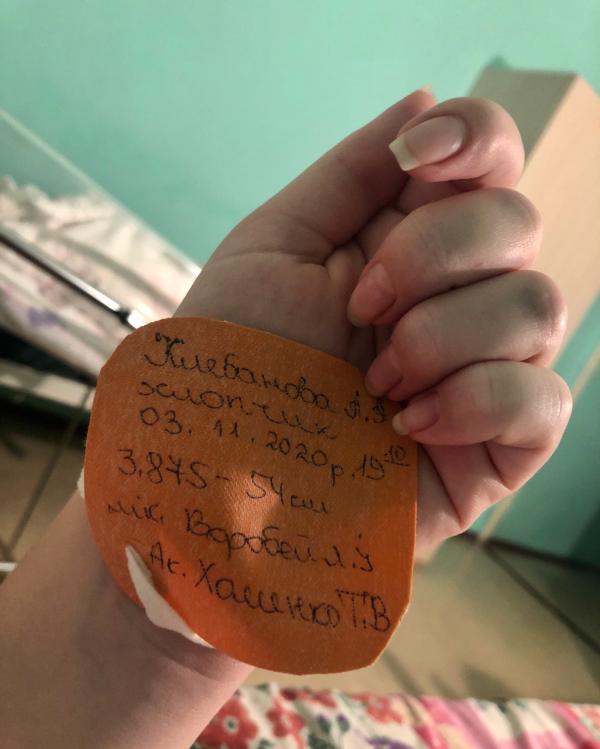 Клебанова А.В
хлопчик
03.11.2020р. 19:10
3.875 – 54см
лік. Воробей Л.У
Ак. Хашенко Т.В